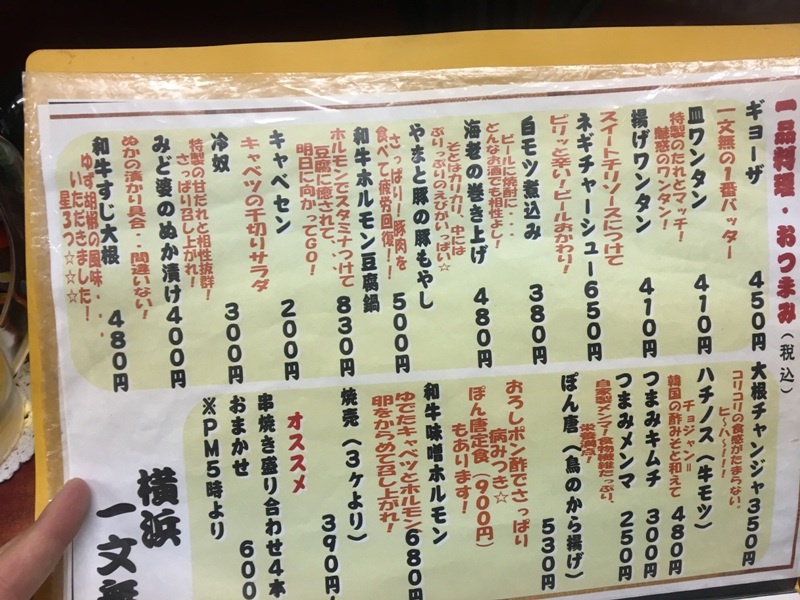 一品料理・おつまみ（税込）
ギョーザ 450円
一文無の1番バッター
皿ワンタン 410円
特製のたれとマッチ！
魅惑のワンタン！
揚げワンタン 410円
スイートチリソースにつけて
ネギチャーシュー 650円
ピリッと辛い！ビールおかわり！
白モツ煮込み 380円
ビールに焼酎に・・・
どんなお酒でも相性よし！
海老の巻き上げ 480円
そとはカリカリ、中には
ぷりっぷりのえびがいっぱい☆
やまと豚の豚もやし 500円
さっぱり！豚肉を
食べて疲労回復！！
和牛ホルモン豆腐鍋 830円
ホルモンでスタミナつけて
豆腐に癒されて、、、
明日に向かってGO！
キャベセン 200円
キャベツの千切りサラダ
冷奴 300円
特製の甘だれと相性抜群！
さっぱり召し上がれ！
みど婆のぬか漬け 400円
ぬかの漬かり具合・・間違いない！
和牛すじ大根 480円
ゆず胡椒の風味・・・
いただきました！
星3つ☆☆☆
大根チャンジャ 350円
コリコリの食感がたまらない、
ヒ〜ハ〜！！！
ハチノス（牛モツ） 480円
チョジャン＝
韓国の酢みそと和えて
つまみキムチ 300円
つまみメンマ 250円
自家製メンマ！食物繊維たっぷり、
栄養満点！
ぽん唐（鳥のから揚げ） 530円
おろしポン酢でさっぱり
病みつき☆
ぽん唐定食（900円）
もあります！
和牛味噌ホルモン 680円
ゆでたキャベツとホルモン
卵をからめて召し上がれ！
焼売（3ヶより） 390円
オススメ
串焼き盛り合わせ4本
おまかせ 600
※PM5時より
横浜
一文無